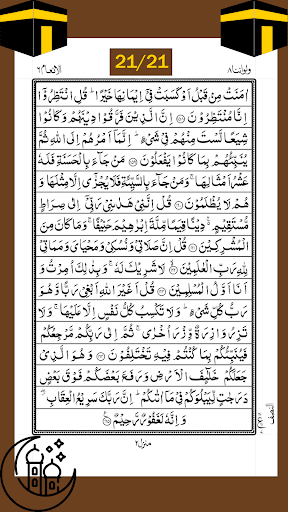 21/21
ولواننا ٨
الانعام ٦
اٰمَنَتْ مِنْ قَبْلُ اَوْ كَسَبَتْ فِيْٓ اِيْمَانِهَا خَيْرًا ؕ قُلِ انْتَظِرُوْٓا
اِنَّا مُنْتَظِرُوْنَ ۝ اِنَّ الَّذِيْنَ فَرَّقُوْا دِيْنَهُمْ وَكَانُوْا
شِيَعًا لَّسْتَ مِنْهُمْ فِيْ شَيْءٍ ؕ اِنَّمَآ اَمْرُهُمْ اِلَى اللّٰهِ ثُمَّ
يُنَبِّئُهُمْ بِمَا كَانُوْا يَفْعَلُوْنَ ۝ مَنْ جَآءَ بِالْحَسَنَةِ فَلَهٗ
عَشْرُ اَمْثَالِهَا ۚ وَمَنْ جَآءَ بِالسَّيِّئَةِ فَلَا يُجْزٰٓى اِلَّا مِثْلَهَا وَ
هُمْ لَا يُظْلَمُوْنَ ۝ قُلْ اِنَّنِيْ هَدٰىنِيْ رَبِّيْٓ اِلٰى صِرَاطٍ
مُّسْتَقِيْمٍ ۚ دِيْنًا قِيَمًا مِّلَّةَ اِبْرٰهِيْمَ حَنِيْفًا ۚ وَمَا كَانَ مِنَ
الْمُشْرِكِيْنَ ۝ قُلْ اِنَّ صَلَاتِيْ وَنُسُكِيْ وَمَحْيَايَ وَمَمَاتِيْ
لِلّٰهِ رَبِّ الْعٰلَمِيْنَ ۝ لَا شَرِيْكَ لَهٗ ۚ وَبِذٰلِكَ اُمِرْتُ وَ
اَنَا اَوَّلُ الْمُسْلِمِيْنَ ۝ قُلْ اَغَيْرَ اللّٰهِ اَبْغِيْ رَبًّا وَّهُوَ
رَبُّ كُلِّ شَيْءٍ ؕ وَلَا تَكْسِبُ كُلُّ نَفْسٍ اِلَّا عَلَيْهَا ۚ وَلَا
تَزِرُ وَازِرَةٌ وِّزْرَ اُخْرٰى ۚ ثُمَّ اِلٰى رَبِّكُمْ مَّرْجِعُكُمْ
فَيُنَبِّئُكُمْ بِمَا كُنْتُمْ فِيْهِ تَخْتَلِفُوْنَ ۝ وَهُوَ الَّذِيْ
جَعَلَكُمْ خَلٰٓئِفَ الْاَرْضِ وَرَفَعَ بَعْضَكُمْ فَوْقَ بَعْضٍ
دَرَجٰتٍ لِّيَبْلُوَكُمْ فِيْ مَآ اٰتٰىكُمْ ؕ اِنَّ رَبَّكَ سَرِيْعُ الْعِقَابِ ۖ
وَاِنَّهٗ لَغَفُوْرٌ رَّحِيْمٌ ۝
النصف
منزل ٢